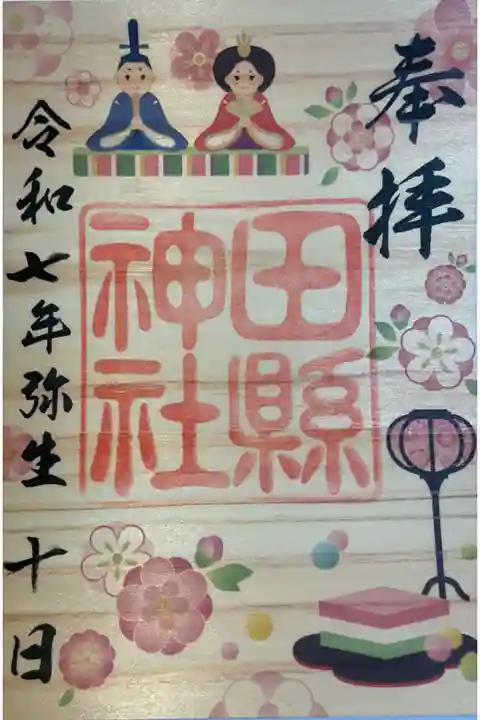 奉拝
田縣
神社
令和七年弥生 十日